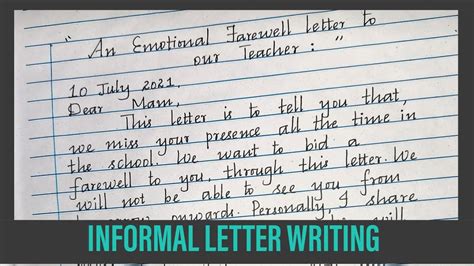 " An Emotional Farewell letter to
our Teacher: "
10 July 2021.
Dear Mam,
This letter is to tell you that,
we miss your presence all the time in
the school. We want to bid a
farewell to you, through this letter. We
will not be able to see you from
onwards. Personally I share
will
INFORMAL LETTER WRITING